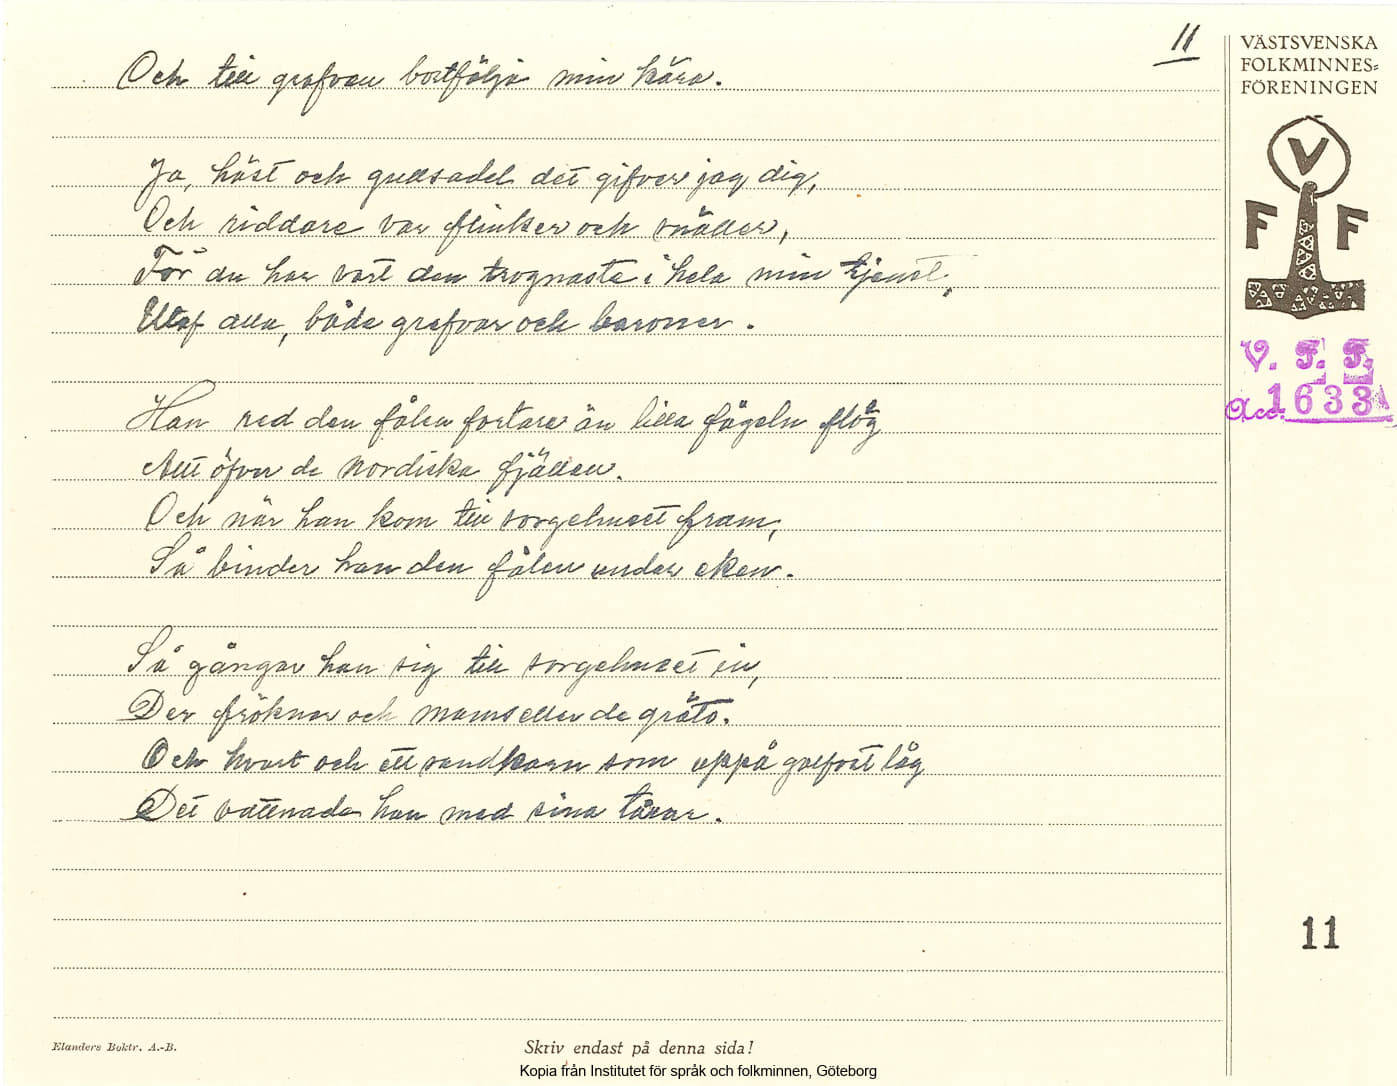 11
Och till grafven bortfölja min kära.
Ja, häst och gullsadel det gifver jag dig,
Och riddare var flinker och snäller,
För du har vart den trognaste i hela min tjenst,
Utaf alla, både grefvar och baroner.
Han red den fålen fortare än lilla fågeln flög
Allt öfver de nordiska fjällen.
Och när han kom till sorgehuset fram,
Så binder han den fålen under eken.
Så gångar han sig till sorgehuset in,
Der fröknar och mamseller de gråto.
Och hvart och ett sandkorn som uppå golfvet låg
Det vattnade han med sina tårar.
VÄSTSVENSKA
FOLKMINNES=
FÖRENINGEN
V
F F
V. F. F.
Acc. 1633
11
Elanders Boktr. A.-B.
Skriv endast på denna sida!
Kopia från Institutet för språk och folkminnen, Göteborg